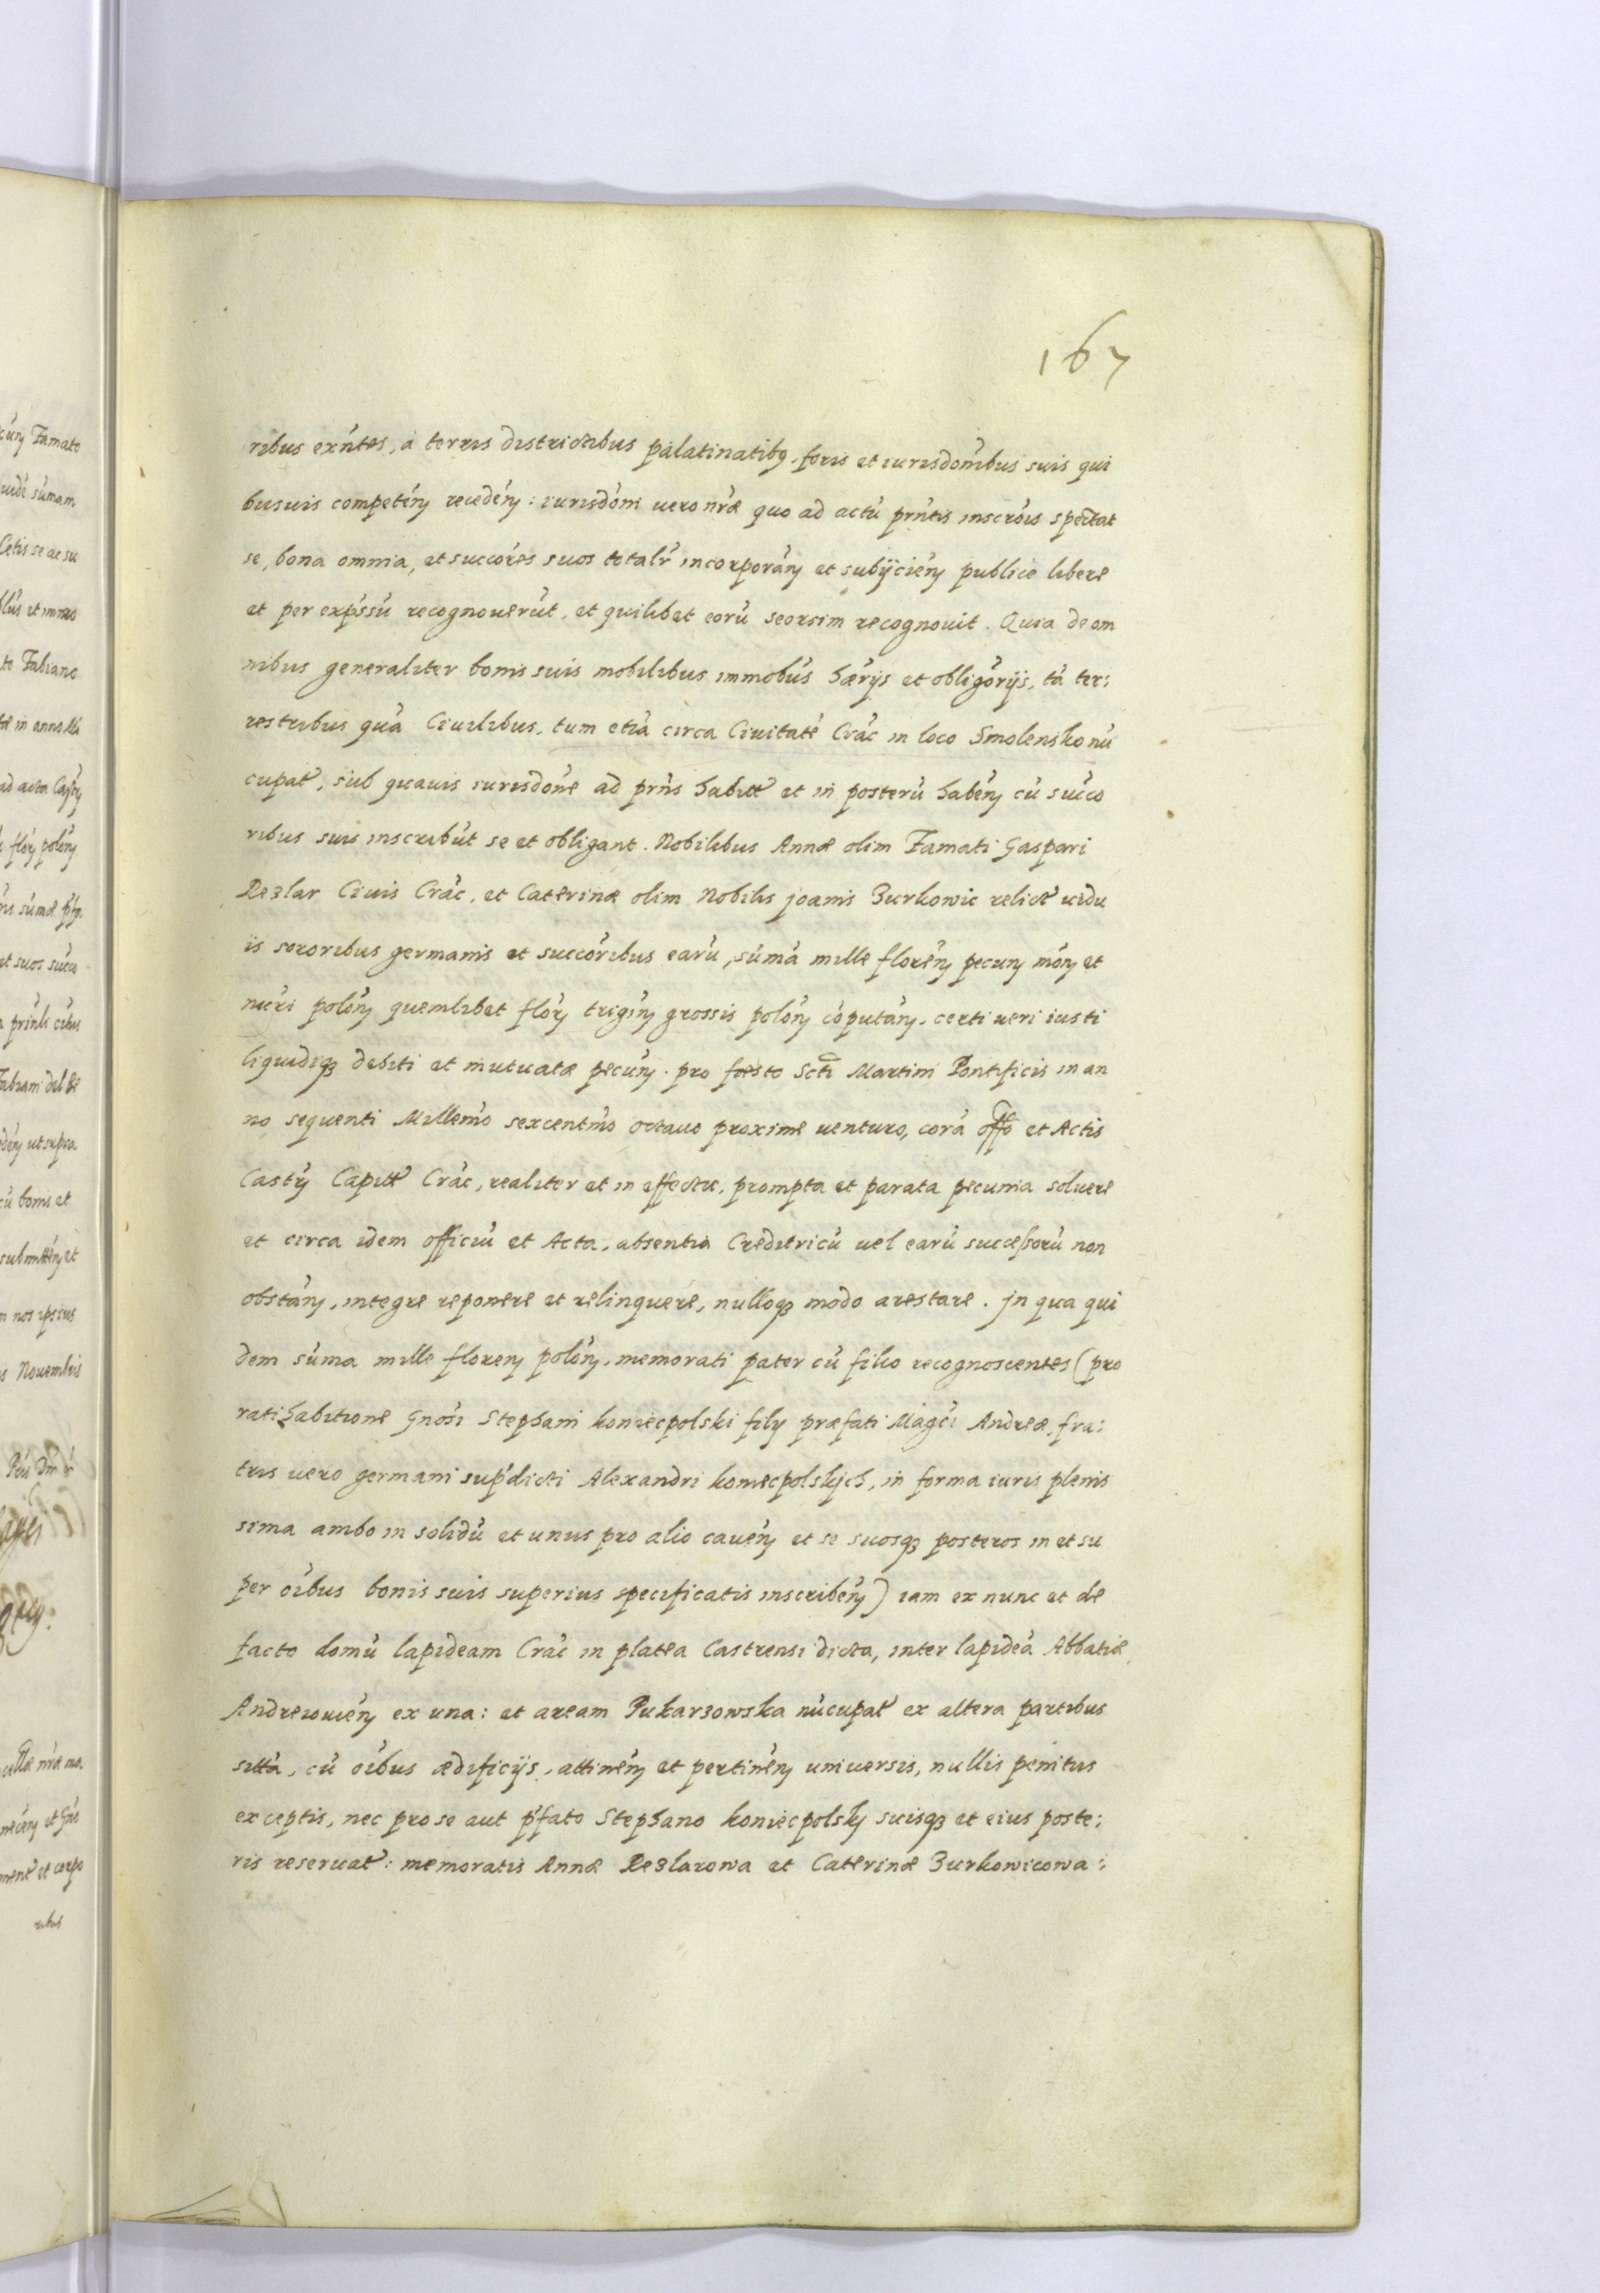 167
ribus exńtes, a terris districtibus palatinatibꝫ. foris et iurisdońibus suis qui
busuis competéń recedéń : iurisdóni uero nŕæ quo ad actú prńtis inscróis spectat
se, bona omnia, et succóres suos totalŕ incorporáń et subijcieńń publice libere
et per expŕssú recognouerút, et quilibet eorú seorsim recognouit. Quia de om
nibus generaliter bonis suis mobilibus immobús hæŕijs et obligórijs, tá ter:
restribus quá Ciuilibus, tum etiá circa Ciuitaté Crác in loco Smolensko nú
cupať, sub quauis iurisdóne ad prńs habitť et in posterú habéń cú súcco
ribus suis inscribút se et obligant. Nobilibus Annæ olim Famati Gaspari
Rezlar Ciuis Crác, et Caterinæ olim Nobilis Joanis Zurkowic relictť uidu
is sororibus germanis et succóribus earú, súmá mille floréń pecuń móń et
nuḿri polóń quemlibet flóń trigińń grossis polóń cóputáń. certi ueri iusti
liquidiqꝫ debiti et mutuatæ pecúń. pro festo Scti Martini Pontificis in an
no sequenti Millemó sexcentmó octauo proxime uenturo, corá offo et Actis
Castrń Capitť Crác, realiter et in effectu, prompta et parata pecunia soluere
et circa idem officiú et Acta, absentia Creditricú uel earú successorú non
obstáń, integre reponere et relinquere, nulloqꝫ modo arestare. Jn qua qui
dem súma mille floreń polóń, memorati pater cú filio recognoscentes (pro
ratihabitione Gnósi Stephani koniecpolski filij præfati Magći Andreæ, fra:
tris uero germani supŕdicti Alexandri koniecpolskich, in forma iuris plenis
sima ambo in solidú et unus pro alio cauéń et se suosqꝫ posteros in et su
per óibus bonis suis superius specificatis inscribéń) iam ex nunc et de
facto domú lapideam Crác in platea Castrensi dicta, inter lapideá Abbatiæ
Andreiouiéń ex una: et aream Pukarzowska núcupať ex altera partibus
sittá, cú óibus ædificijs, attinéń et pertinéń uniuersis, nullis penitus
exceptis, nec pro se aut pŕfato Stephano koniecpolskj suisqꝫ et eius poste:
ris reseruať: memoratis Annæ Rezlarowa et Caterinæ Zurkowicowa: